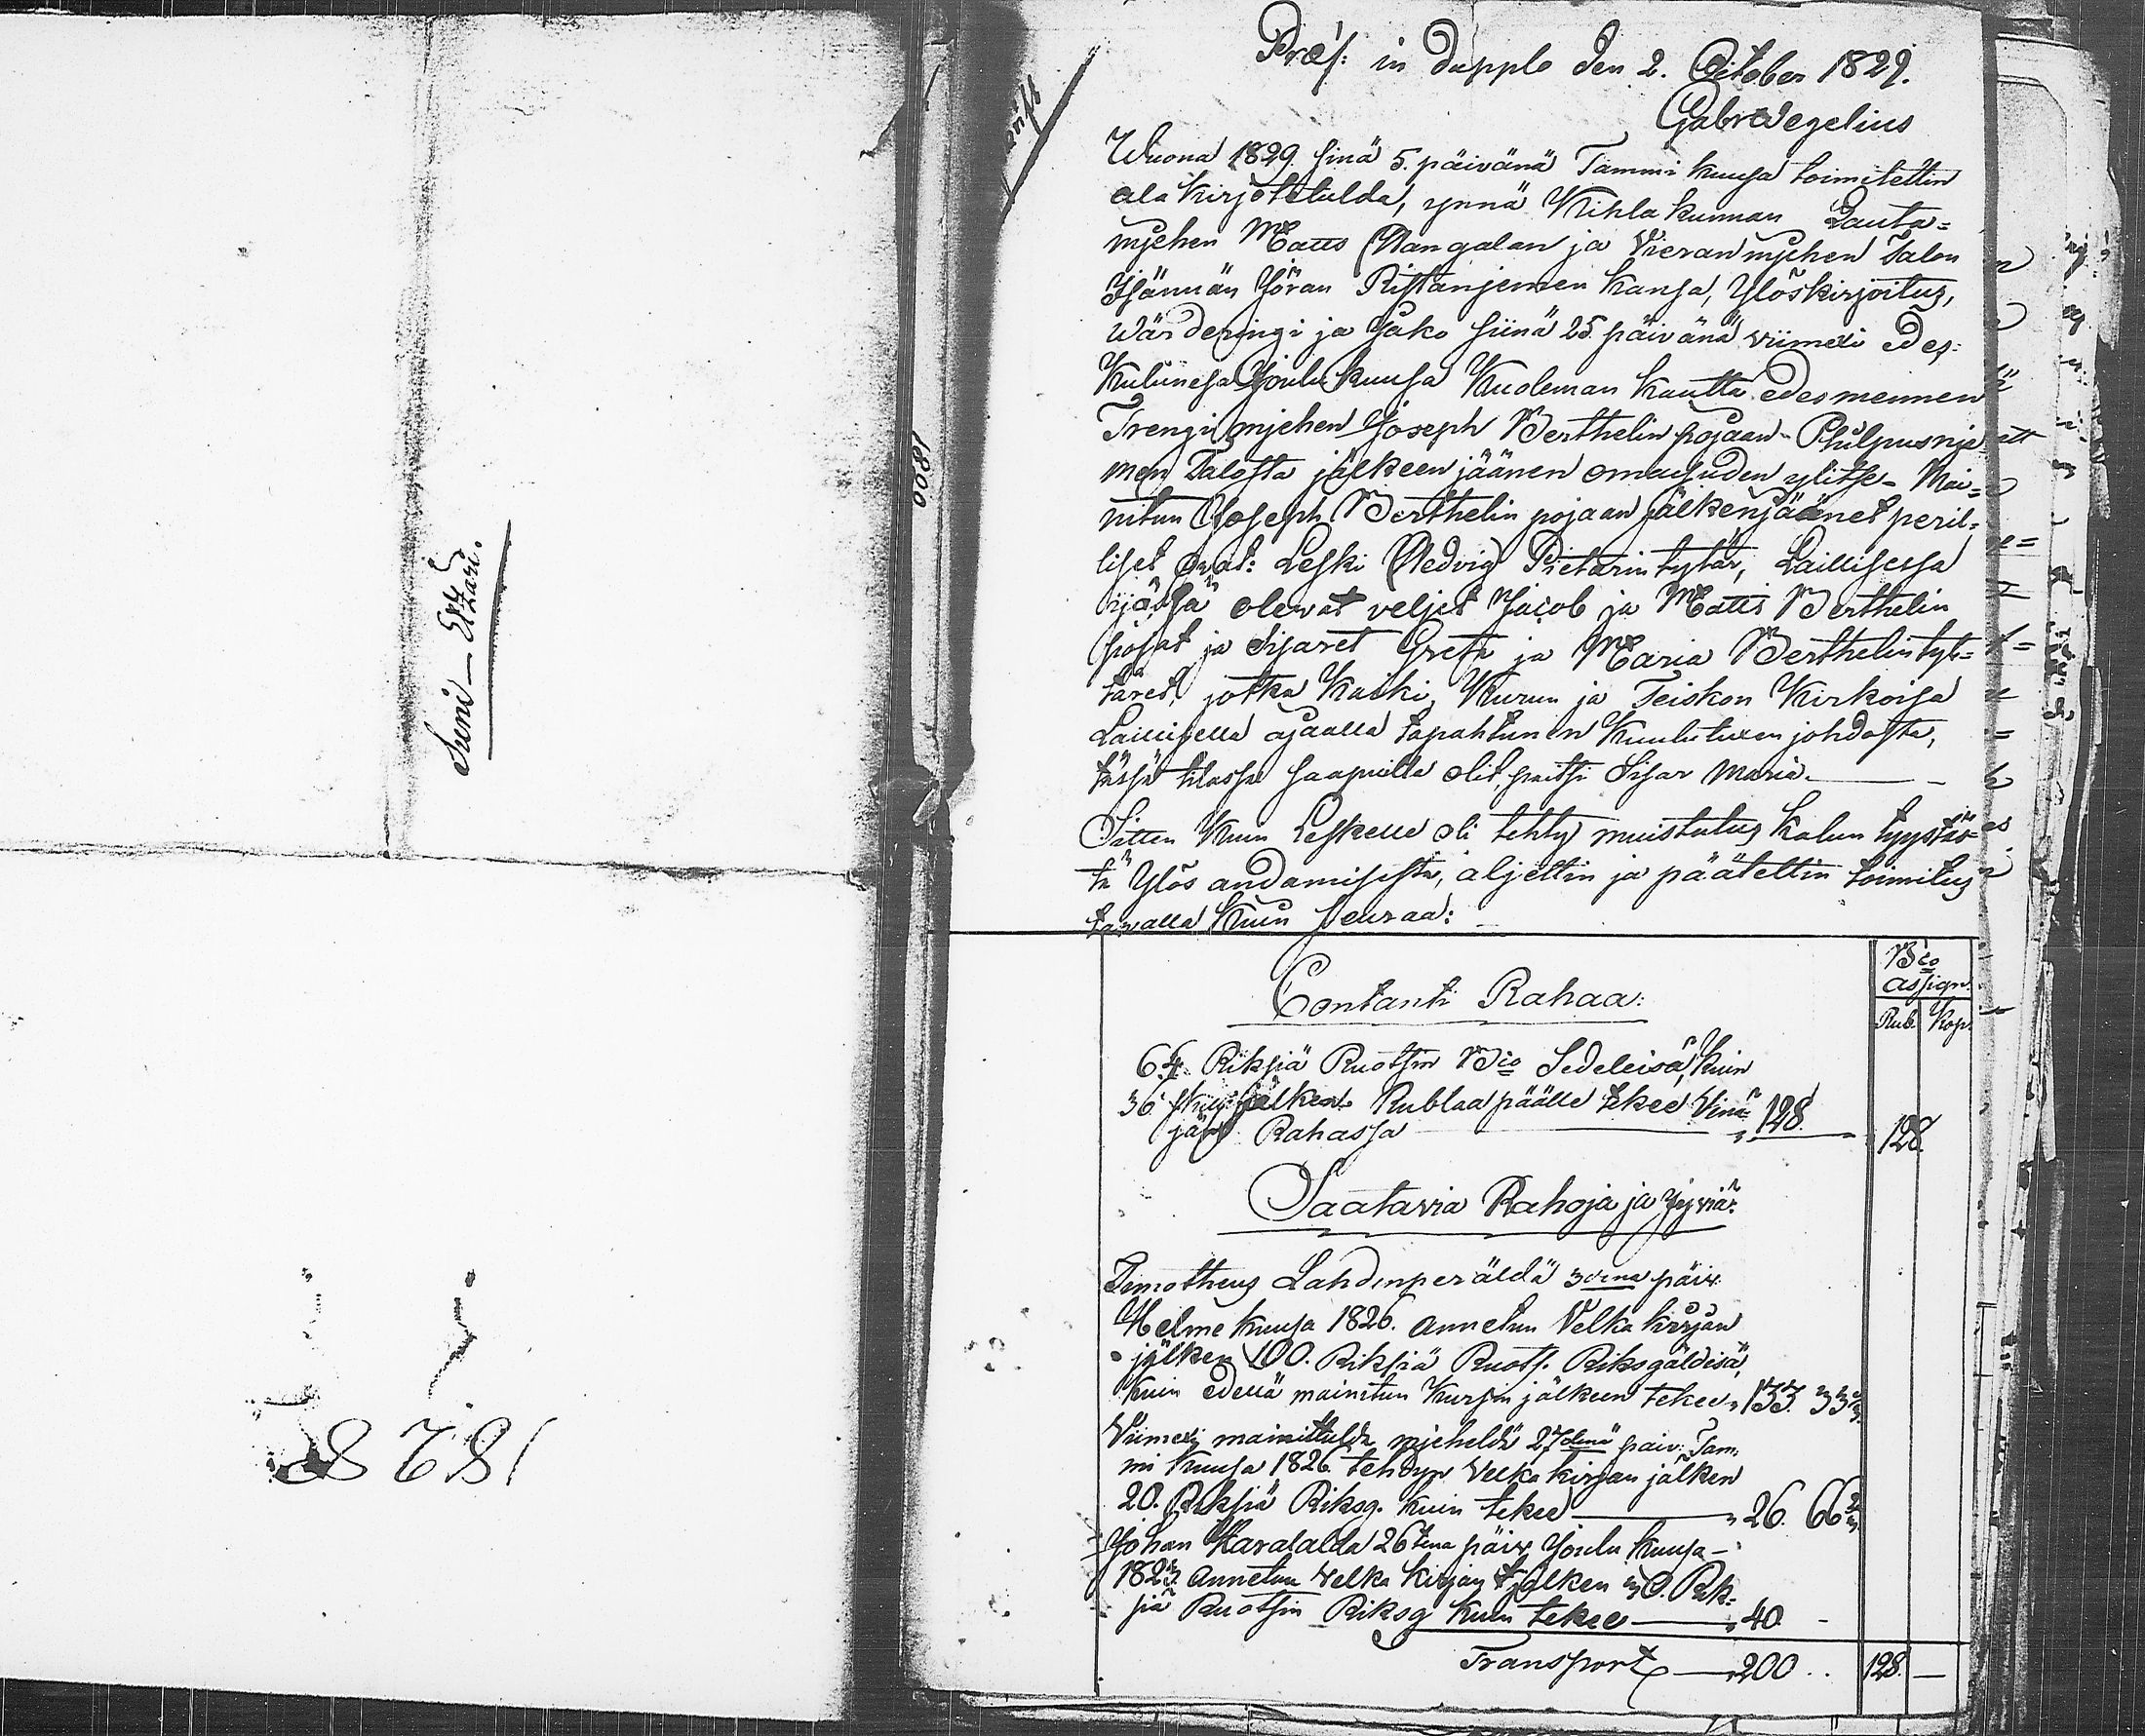 Præs: in dupplo den 2. October 1829.
Gabr Wegelius
Wuona 1829 sinä 5. päivänä Tammi kuusa toimitettin
ala kirjoitetulda, ynnä Kihlakunnan Lauta=
mjehen Matts Wangalan ja Vieranmjehen Talon
Isännän Jöran Ristanjemen kansa, Ylöskirjoitus,
Wärderingi ja Jako siinä 25 päivänä viimexi edes=
kulunesa Joulu kuusa Kuoleman kautta edesmennen
Trengi mjehen Joseph Berthelin pojaan Philpusnje
men Talosta jälkeen jäänen omaisuden ylitse – Mai=
nitun Joseph Berthelin pojaan jälkenjäänet peril=
liset ovat: Leski Hedvig Pietarin tytär, Laillisessa
ijäsä olevat veljet Jacob ja Matts Berthelin
pojat ja Sisaret Greta ja Maria Berthelin tyt=
täret, jotka kaiki, Kurun ja Teiskon Kirkoisa
Laillisella ajaalla tapahtunen Kuulutuxen johdosta,
tässä tilassa saapuilla olit, paitsi Sisar Maria.
Sitten kuin Leskelle oli tehty muistutus kalun tyystäs=
tä Ylös andamisesta, aljettin ja päätettin toimitus
tavalla kuin seuraa:
Bco
assign.
Rub. Kop.
Contanti Rahaa:
64 Riksiä Ruotsin Bco Sedeleisä, kuin
36 skill: jälken Rublaa päälle tekee Venä=
jän Rahassa 128. 128
Saatavia Rahoja ja Jyviä:
Timotheus Lahdenperäldä 3dena päiv.
Helme kuusa 1826. annetun Velka kirjan
jälken 100. Riksiä Ruots. Riksgäldisä,
kuin edellä mainitun Kursin jälkeen tekee 133. 33 1/3
Viimexi mainitulda mjeheldä 27denä päiv: Tam=
mi kuusa 1826. tehdyn Velka kirjan jälken
20. Riksiä Riksg. kuin tekee 26. 66 2/3
Johan Haralalda 26tena päiv Joulu kuusa
1823 annetun velka kirjan jälken 30. Rik=
siä Ruotsin Riksg kuin tekee 40 –
Transport 200 .. 128. –
Suoni – Etzari.
1800
1828